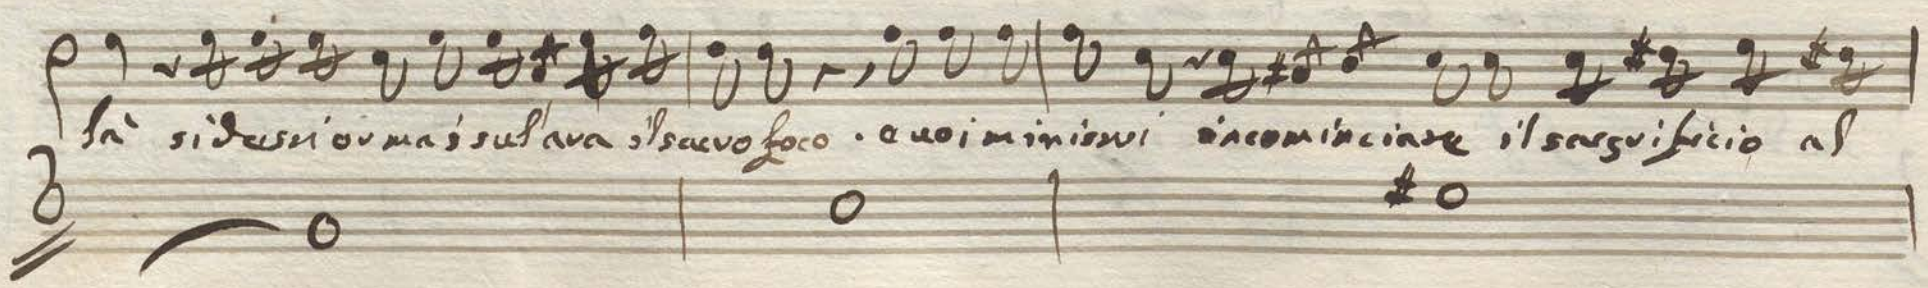 là si desti ormai sul'ara il sacro foco . e voi ministri incominciate il sargrificio al